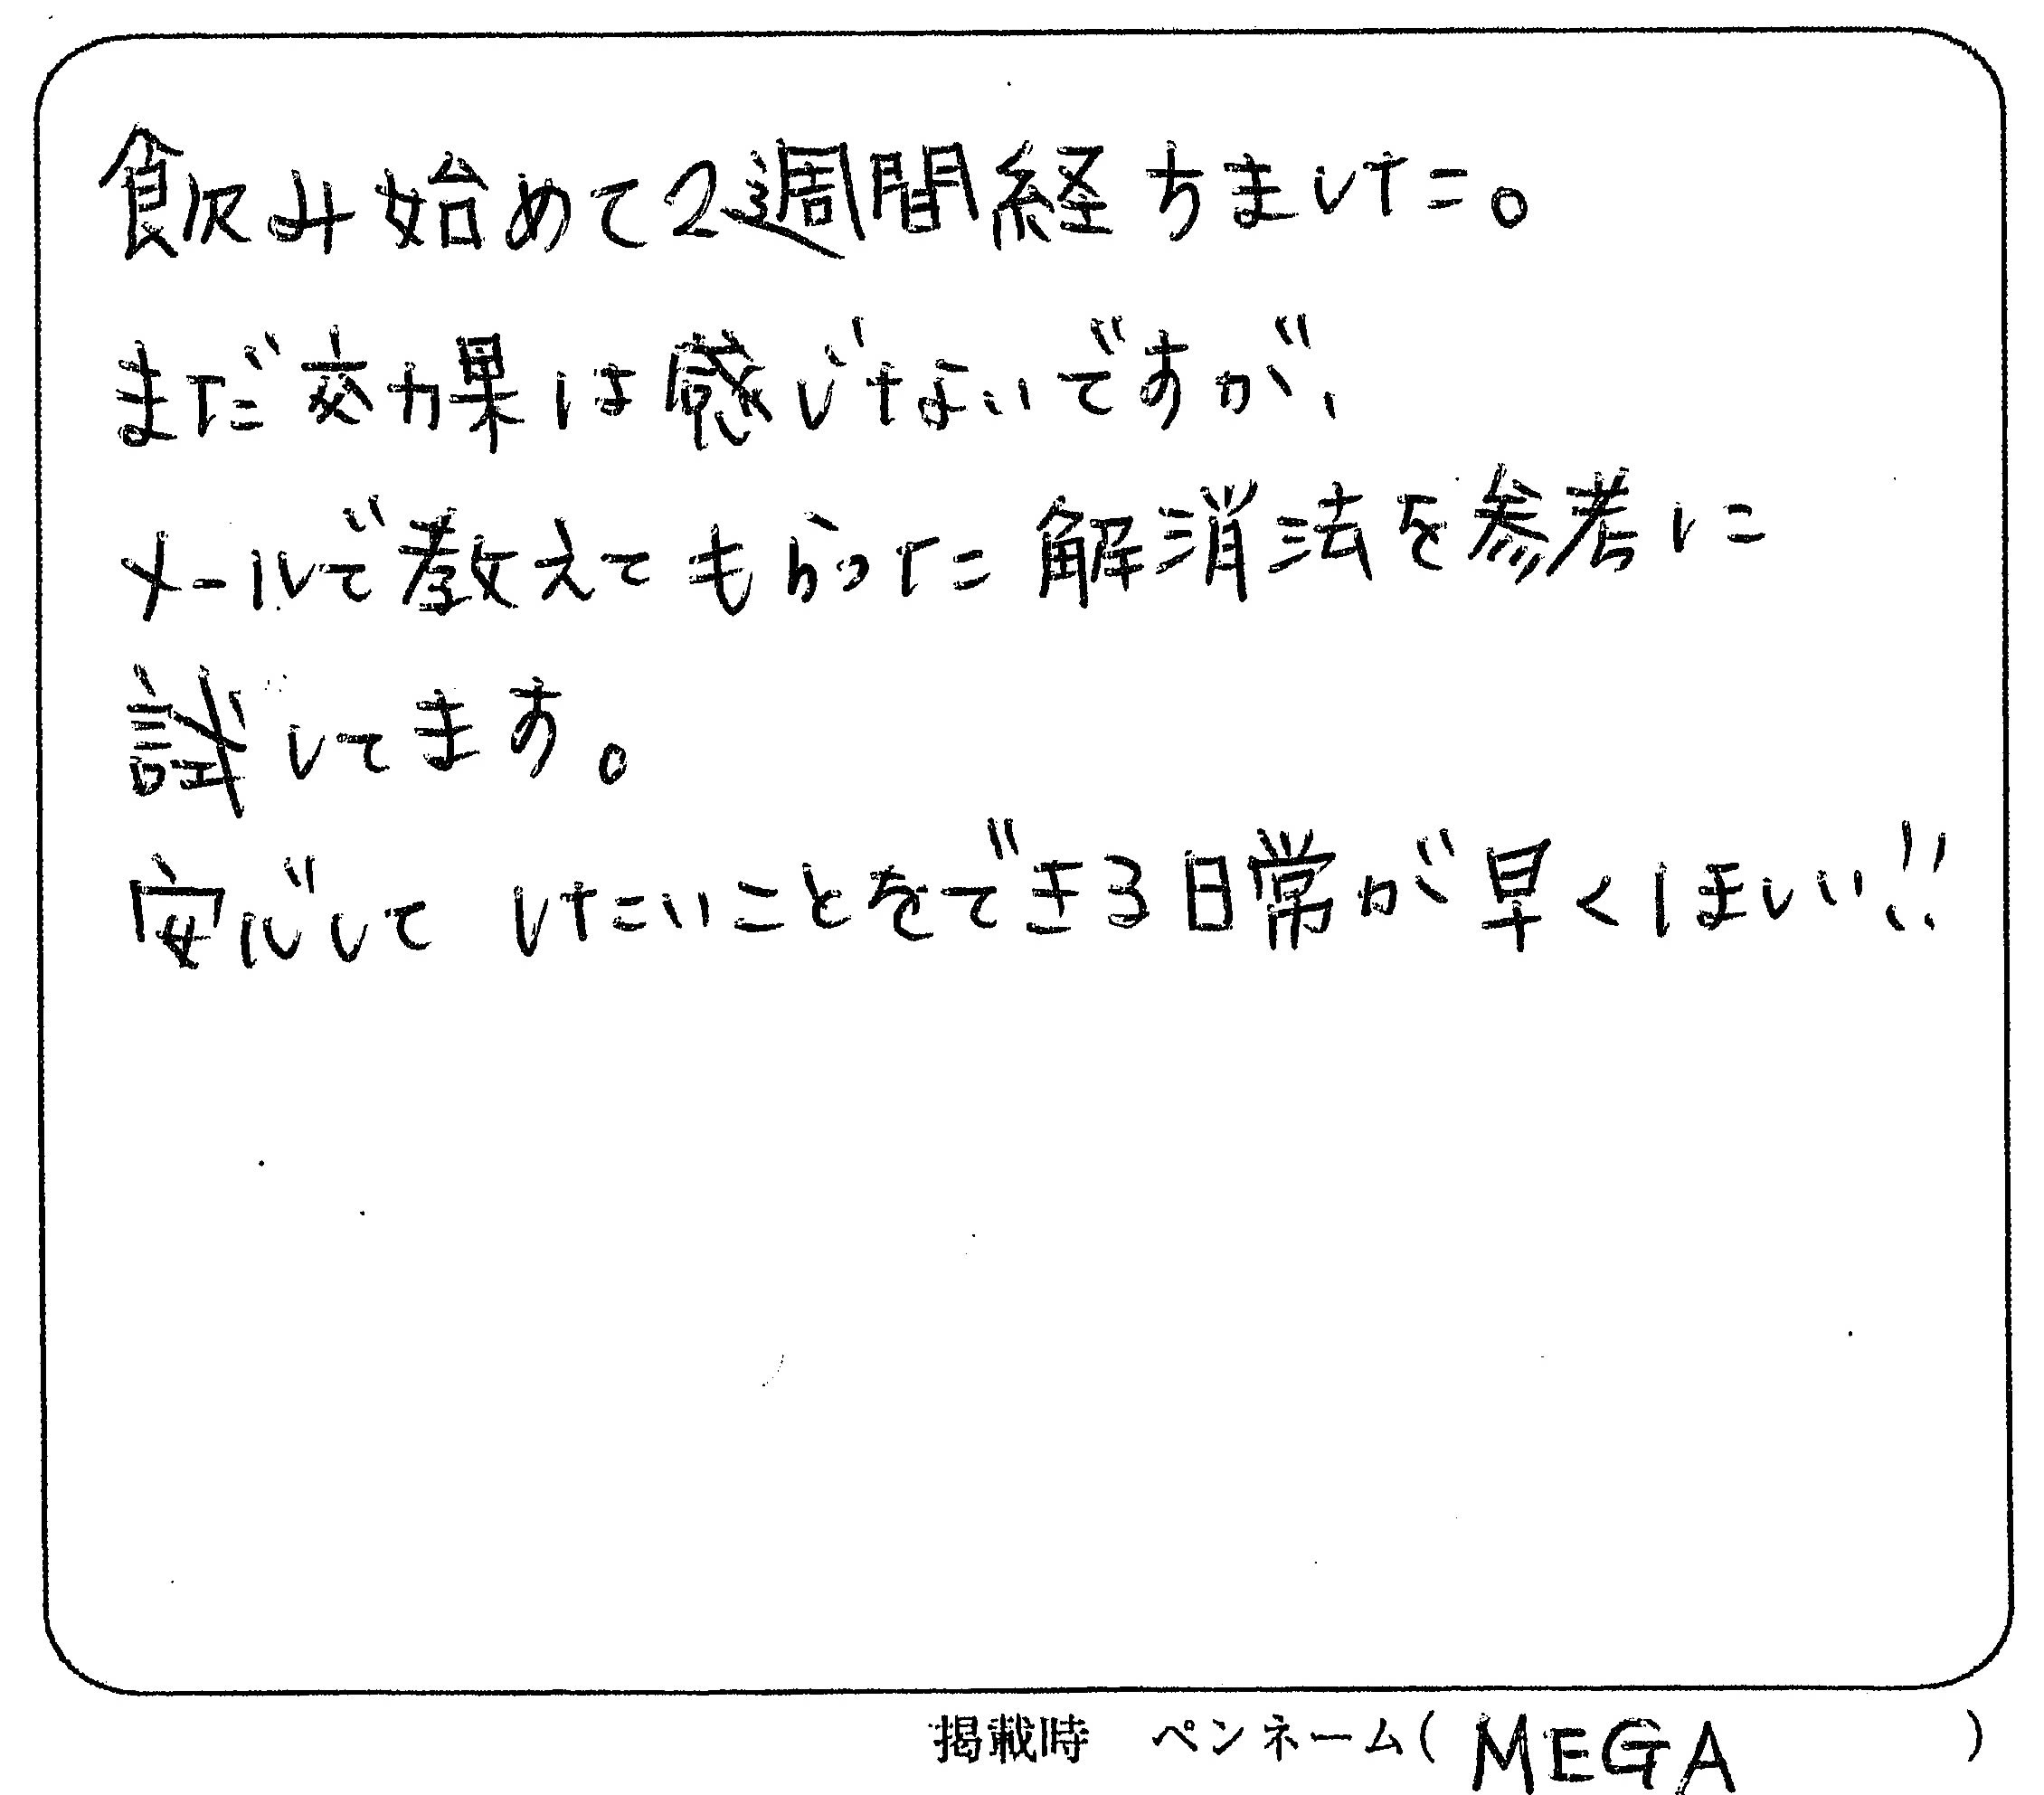 飲み始めて2週間経ちました。
まだ効果は感じないですが、
メールで教えてもらった解消法を参考に
試してます。
安心して したいことをできる日常が早くほしい!!
掲載時 ペンネーム( MEGA )